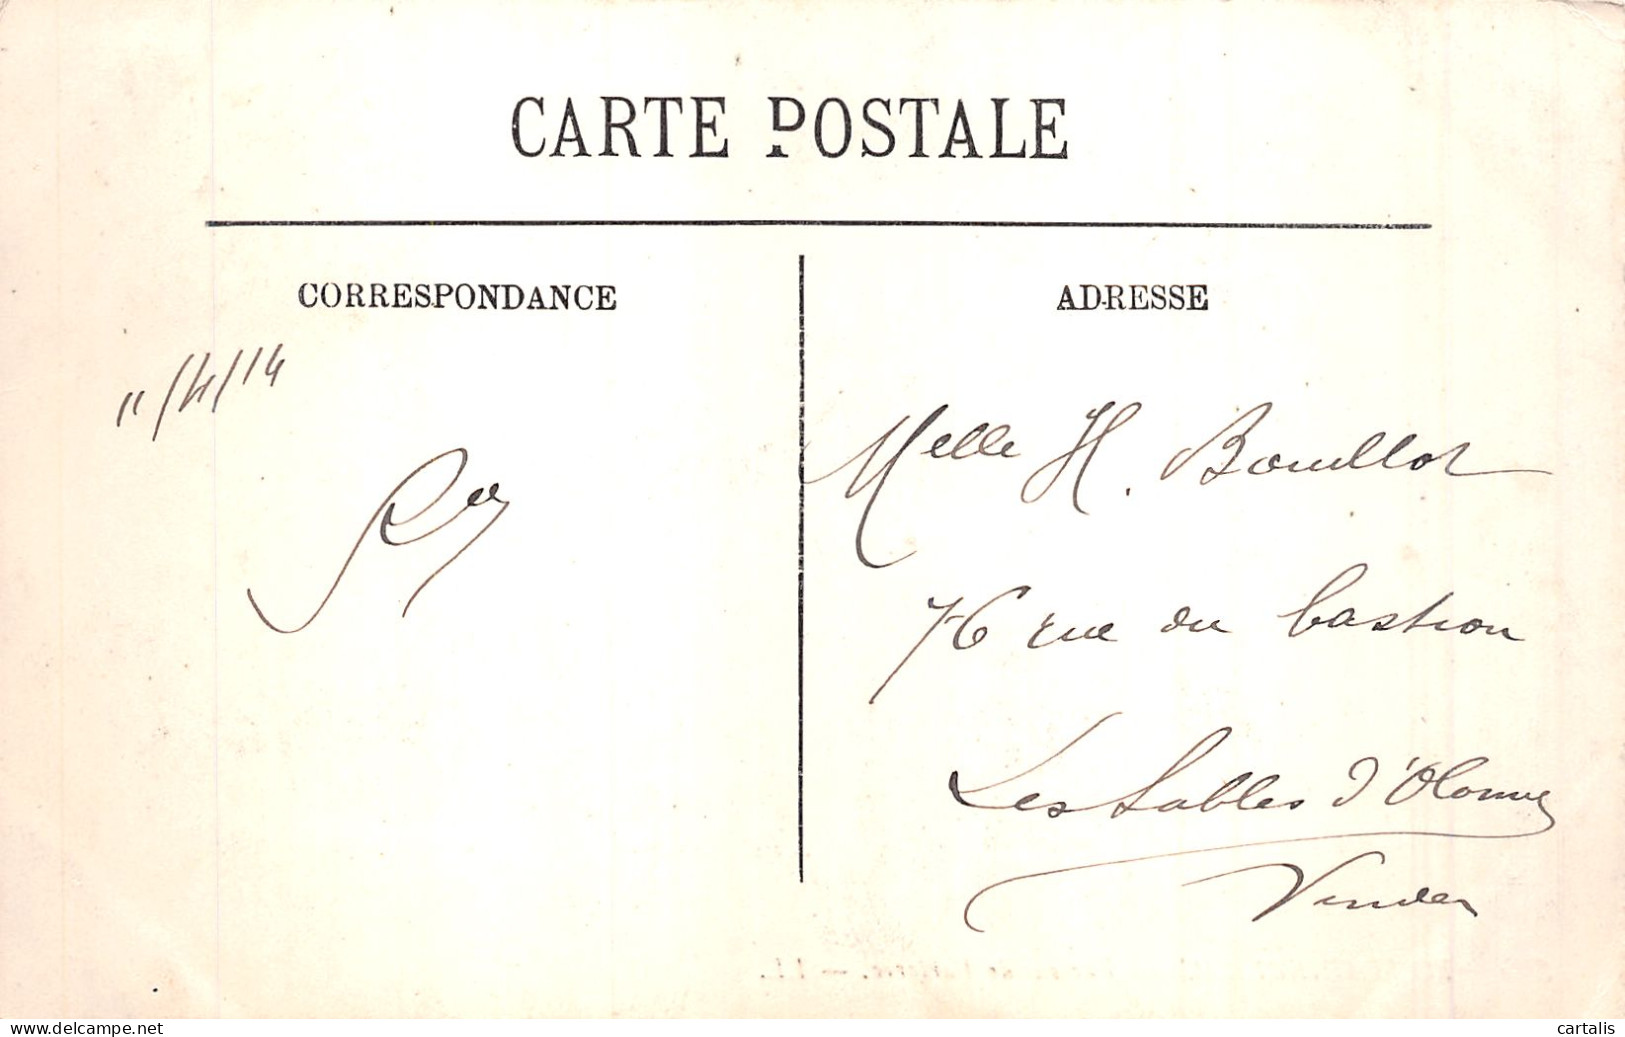 CARTE POSTALE
CORRESPONDANCE
11/4/14
ADRESSE
Melle H. Bouillot
76 rue du bastion
Les Sables d'Olonne
Vendée
delcampe.net
cartalis